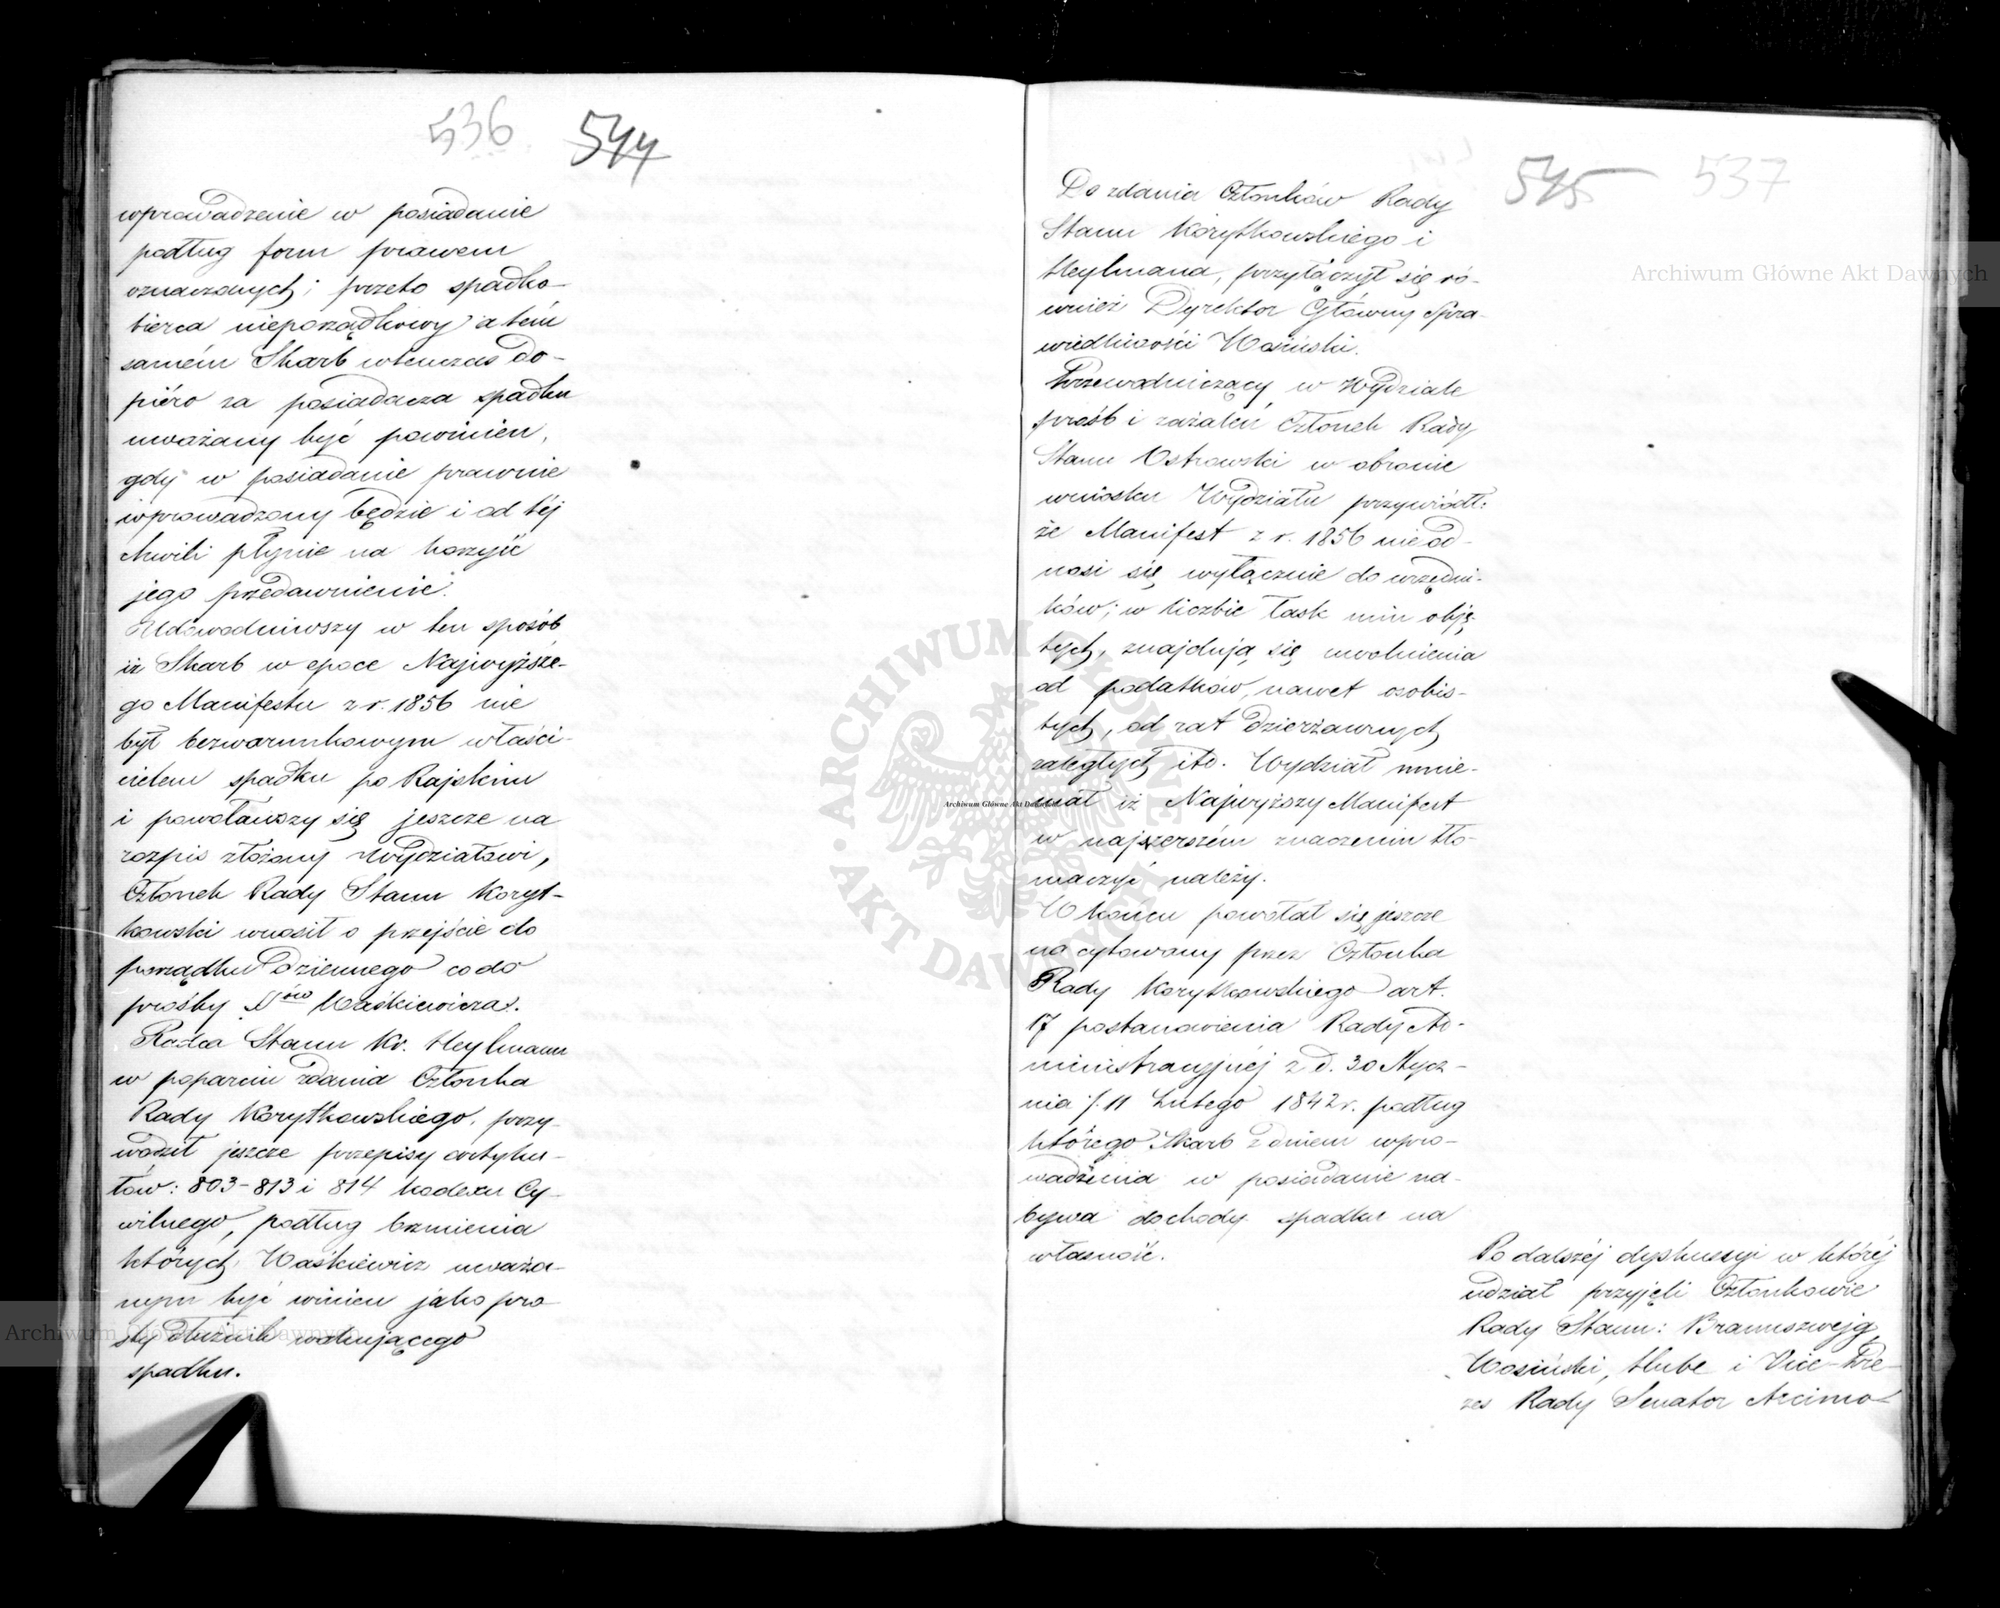 536 544
wprowadzenie w posiadanie
podług form prawem
oznaczonych; przeto spadko-
bierca nieporządkowy a tém
samém Skarb wtenczas do-
piéro za posiadacza spadku
uważany być powinien,
gdy w posiadanie prawnie
wprowadzony będzie i od téj
chwili płynie na korzyść
jego przedawnienie.
Udowodniwszy w ten sposób
iż Skarb w epoce Najwyższe-
go Manifestu z r. 1856 nie
był bezwarunkowym właści-
cielem spadku po Rajskim
i powoławszy się jeszcze na
rozpis złożony Wydziałowi,
Członek Rady Stanu Koryt-
kowski wnosił o przejście do
porządku dziennego co do
prośby Waśkiewicza.
Radca Stanu Kr. Heylmann
w poparciu zdania Członka
Rady Korytkowskiego, przy-
wodził jeszcze przepisy artyku-
łów: 803-813 i 814 kodexu Cy-
wilnego, podług brzmienia
których Waśkiewicz uważa-
nym być winien jako pro-
sty dłużnik wakującego
spadku.
545 537
Do zdania Członków Rady
Stanu Korytkowskiego i
Heylmana, przyłączył się ró-
wnież Dyrektor Główny Spra-
wiedliwości Wosiński.
Przewodniczący w Wydziale
próśb i zażaleń Członek Rady
Stanu Ostrowski w obronie
wniosku Wydziału przywiódł:
że Manifest z r. 1856 nie od-
nosi się wyłącznie do urzędni-
ków; w liczbie łask nim obję-
tych, znajdują się uwolnienia
od podatków, nawet osobis-
tych, od rat dzierżawnych
zaległych itd. Wydział mnie-
mał iż Najwyższy Manifest
w najszerszém znaczeniu tło-
maczyć należy.
W końcu powołał się jeszcze
na cytowany przez Członka
Rady Korytkowskiego art.
17 postanowienia Rady Ad-
ministracyjnéj z d. 30 Stycz-
nia /. 11 Lutego 1842 r. podług
którego Skarb z dniem wpro-
wadzenia w posiadanie na-
bywa dochody spadku na
własność.
Po dalszéj dyskussyi w któréj
udział przyjęli Członkowie
Rady Stanu: Braunszwejg,
Wosiński, Hube i Vice-Pre-
zes Rady Senator Arcimo-
Archiwum Główne Akt Dawnych
Archiwum Główne Akt Dawnych
Archiwum Główne Akt Dawnych
ARCHIWUM GŁÓWNE AKT DAWNYCH